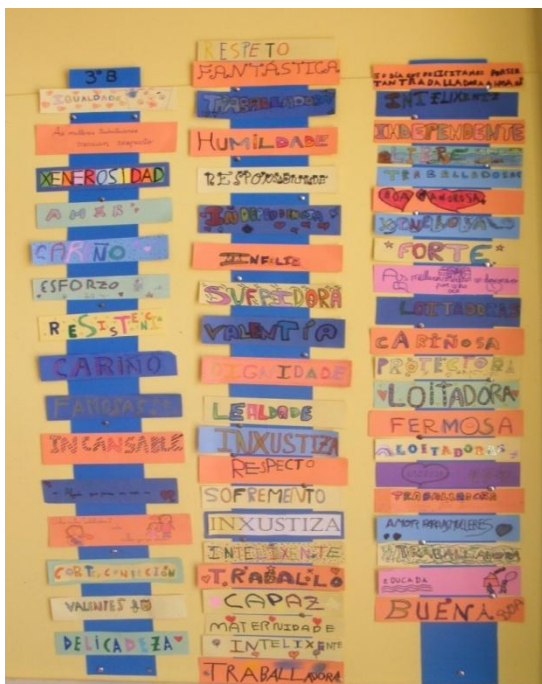 3º B
IGUALDADE
As mulleres
merecen respecto
XENEROSIDAD
AMAR
CARIÑO
ESFORZO
RESISTENCIA
CARIÑO
FANTÁSTICA
INCANSABLE
CORTE CONFECCIÓN
VALENTES
DELICADEZA
RESPETO
FANTÁSTICA
TRABALLADORA
HUMILDADE
RESPONSABILIDADE
INDEPENDENCIA
INFELIZ
SUFRIDORA
VALENTÍA
DIGNIDADE
LEALDADE
INXUSTIZA
RESPECTO
SOFREMENTO
INXUSTIZA
INTELIXENTE
TRABALLO
CAPAZ
MATERNIDADE
INTELIXENTE
TRABALLADORA
INTELIXENTE
INDEPENDENTE
LIBRE
TRABALLADORAS
AMOROSA
XENEROSA
FORTE
As mulleres
LOITADORAS
CARIÑOSA
PROTECTORA
LOITADORA
FERMOSA
LOITADORA
TRABALLADORA
AMOR PARA MULLERES
TRABALLADORA
EDUCADA
BUENA